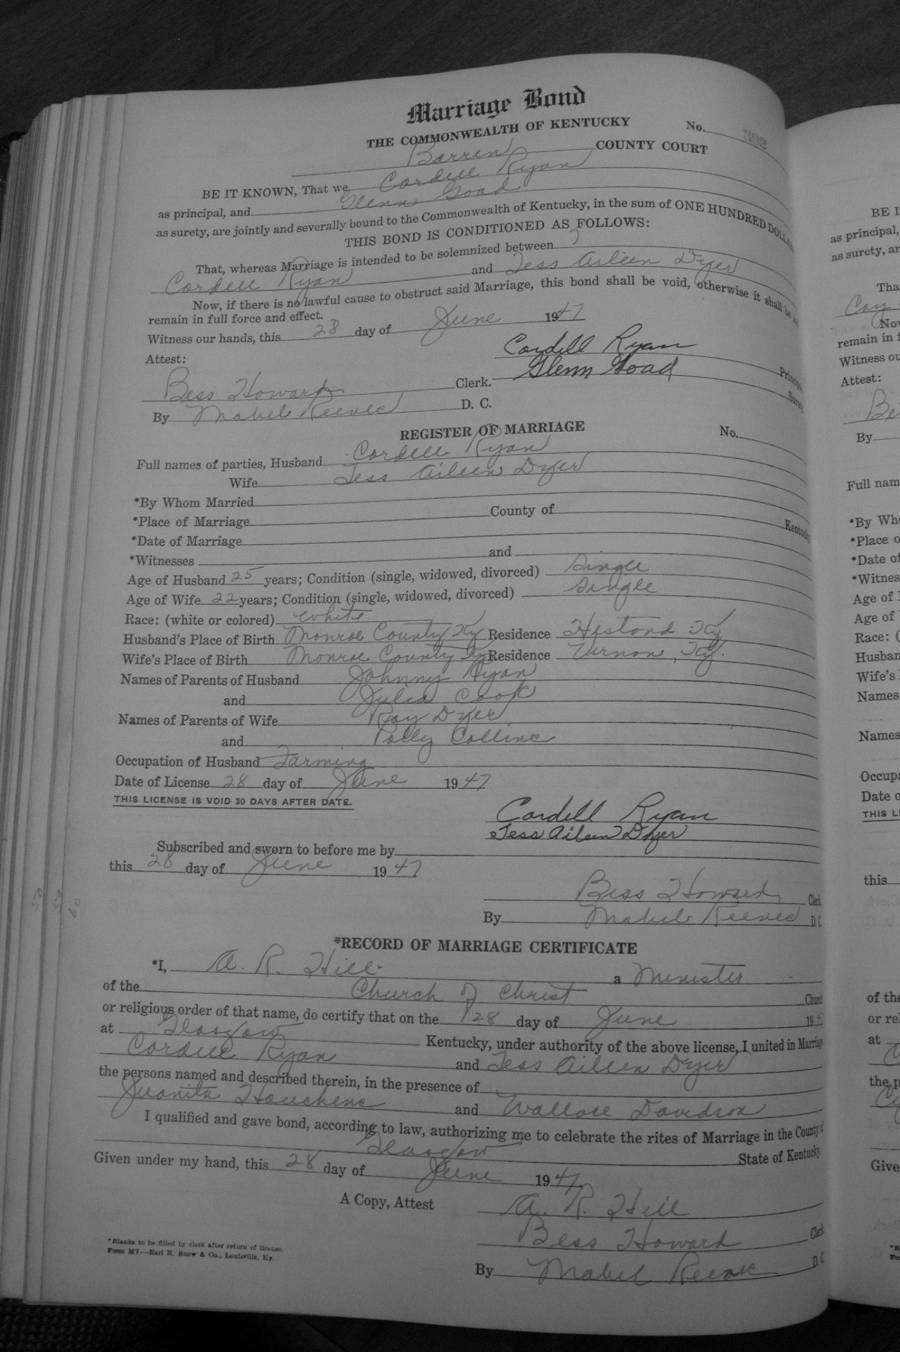 Marriage Bond
THE COMMONWEALTH OF KENTUCKY No.
Barren COUNTY COURT
BE IT KNOWN, That we Cordell Ryan
as principal, and Glenn Goad
as surety, are jointly and severally bound to the Commonwealth of Kentucky, in the sum of ONE HUNDRED DOLLA
THIS BOND IS CONDITIONED AS FOLLOWS:
That, whereas Marriage is intended to be solemnized between
Cordell Ryan and Tess Aileen Dyer
Now, if there is no lawful cause to obstruct said Marriage, this bond shall be void, otherwise it shall
remain in full force and effect.
Witness our hands, this 28 day of June 1947
Attest:
Cordell Ryan Principal
Glenn Goad Surety
Bess Howard Clerk.
By Mabel Reeves D. C.
REGISTER OF MARRIAGE No.
Full names of parties, Husband Cordell Ryan
Wife Tess Aileen Dyer
*By Whom Married
*Place of Marriage County of Kentucky
*Date of Marriage
*Witnesses and
Age of Husband 25 years; Condition (single, widowed, divorced) Single
Age of Wife 22 years; Condition (single, widowed, divorced) Single
Race: (white or colored) White
Husband's Place of Birth Monroe County Ky Residence Hestand Ky
Wife's Place of Birth Monroe County Ky Residence Vernon, Ky.
Names of Parents of Husband Johnny Ryan
and Julia Cook
Names of Parents of Wife Ray Dyer
and Polly Collins
Occupation of Husband Farming
Date of License 28 day of June 1947
THIS LICENSE IS VOID 30 DAYS AFTER DATE.
Cordell Ryan
Tess Aileen Dyer
Subscribed and sworn to before me by
this 28 day of June 1947
Bess Howard Clerk
By Mabel Reeves D C
*RECORD OF MARRIAGE CERTIFICATE
*I, A. R. Hill a Minister
of the Church of Christ Church
or religious order of that name, do certify that on the 28 day of June 19
at Glasgow Kentucky, under authority of the above license, I united in Marriage
Cordell Ryan and Tess Aileen Dyer
the persons named and described therein, in the presence of
Juanita Houchens and Wallace Davidson
I qualified and gave bond, according to law, authorizing me to celebrate the rites of Marriage in the County of
Glasgow State of Kentucky.
Given under my hand, this 28 day of June 1947
A. R. Hill
A Copy, Attest
Bess Howard Clerk
By Mabel Reeves D. C
*Blanks to be filled by clerk after return of license.
Form M7—Earl K. Snow & Co., Louisville, Ky.
BE I
as principal,
as surety, an
Tha
Now
remain in f
Witness ou
Attest:
Be
By
Full nam
*By Who
*Place o
*Date of
*Witnes
Age of
Age of
Race: (
Husban
Wife's
Names
Names
Occupa
Date o
THIS LI
this
of the
or re
at
the p
Give